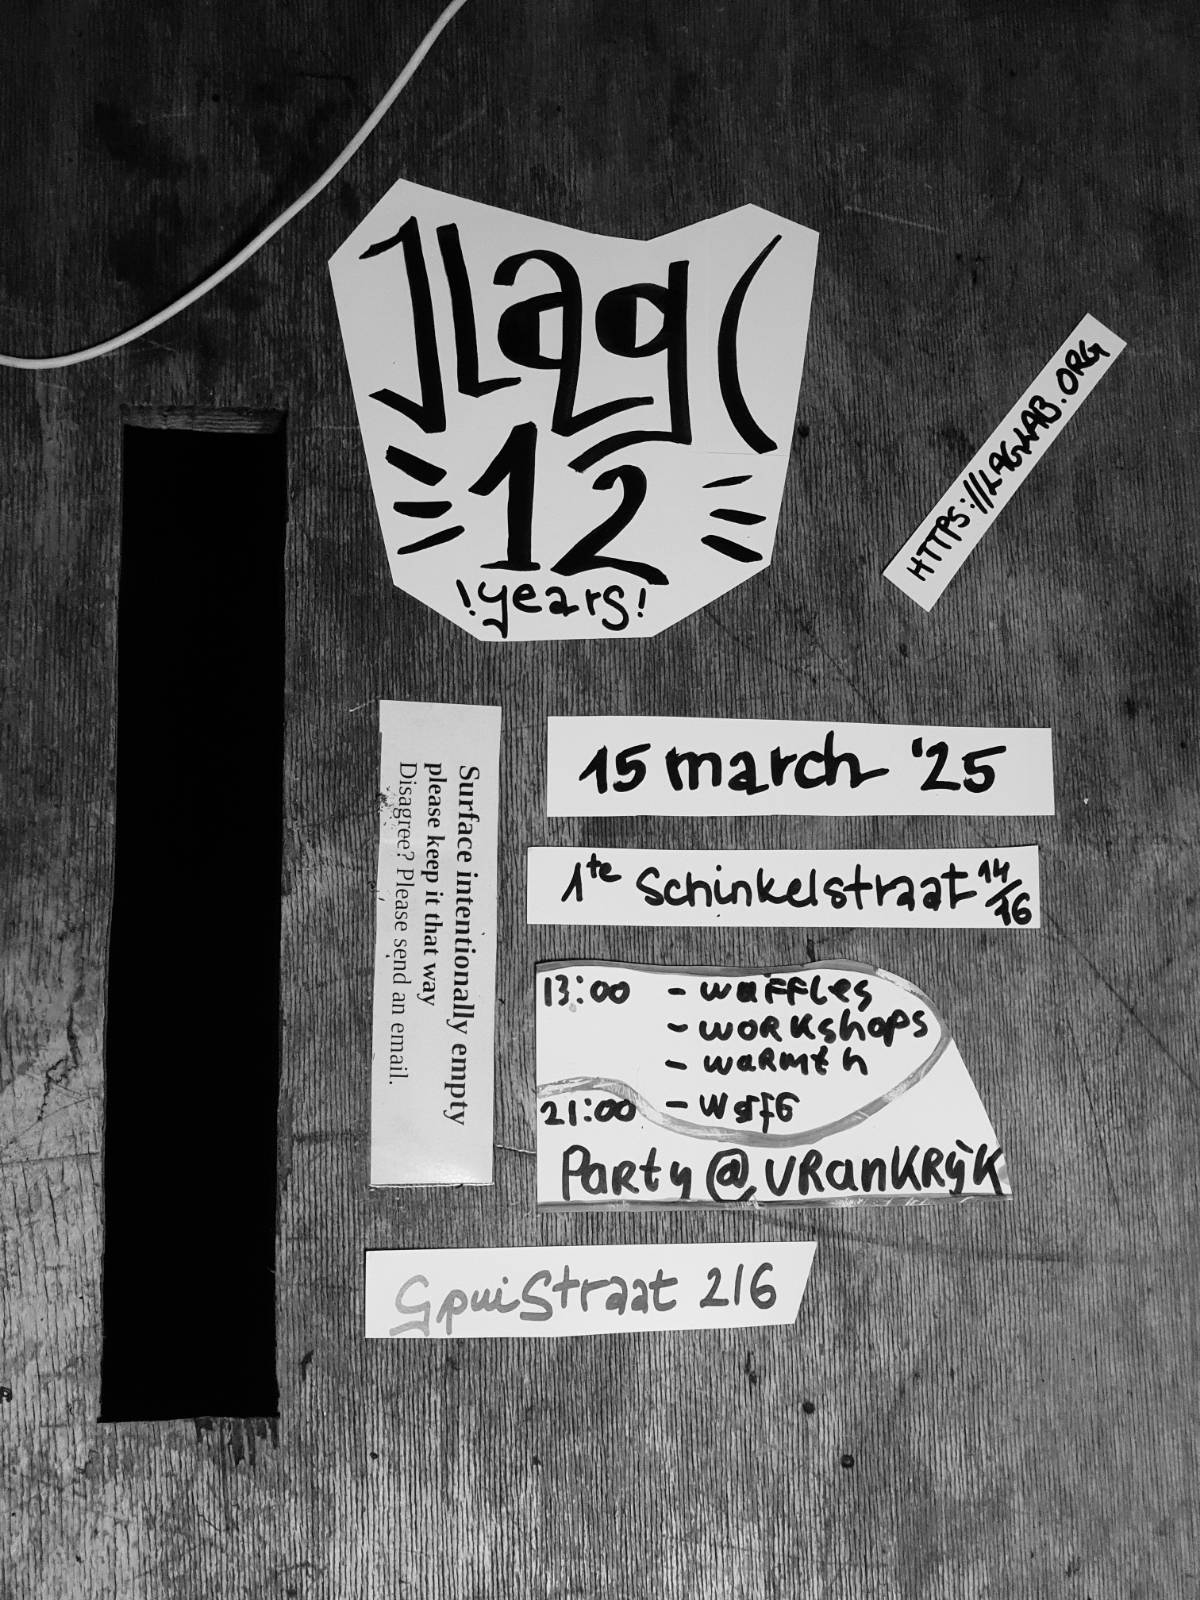 ]Lag(
12
!years!
HTTPS://LAGLAB.ORG
Surface intentionally empty
please keep it that way
Disagree? Please send an email.
15 march '25
1te Schinkelstraat 14/16
13:00 - waffles
- workshops
- warmth
21:00 -
Party @ VRanKRijK
Spuistraat 216